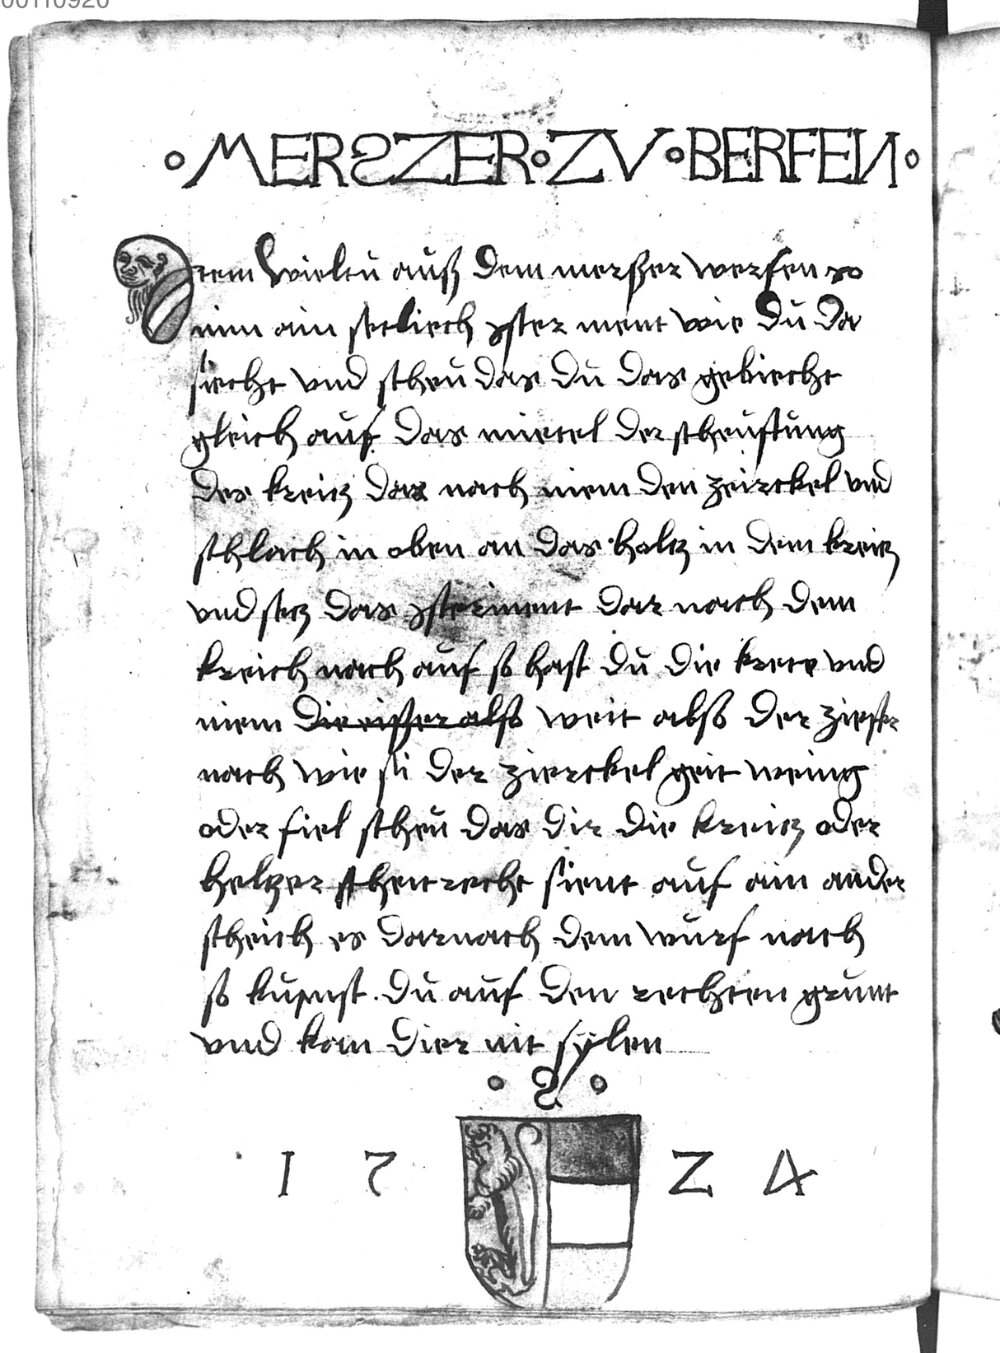 00110920
∘ MERSZER ∘ ZV ∘ BERFEN ∘
Item wieltu auß dem merßer werfen so
nim ain setliech ysterment wie du da
siecht vnd scheu das du das gebiecht
gleich auf das mietel der scheustung
des kreicz dar nach niem den zeirckel vnd
schlach in oben an das holcz in dem kreicz
vnd secz das ysterment dar nach dem
kreich nach auf so hast du die krecz vnd
niem die eisser alß weit alß der zieffer
nach wie sü der zierckel geit weinig
oder fiel scheu das dir die kreicz oder
helczer scheitrecht sient auf ain ander
scheich es darnach dem wurf nach
so kumst du auf den rechten grunt
vnd kan dier nit fÿlen
∘ S ∘
1 5 2 4